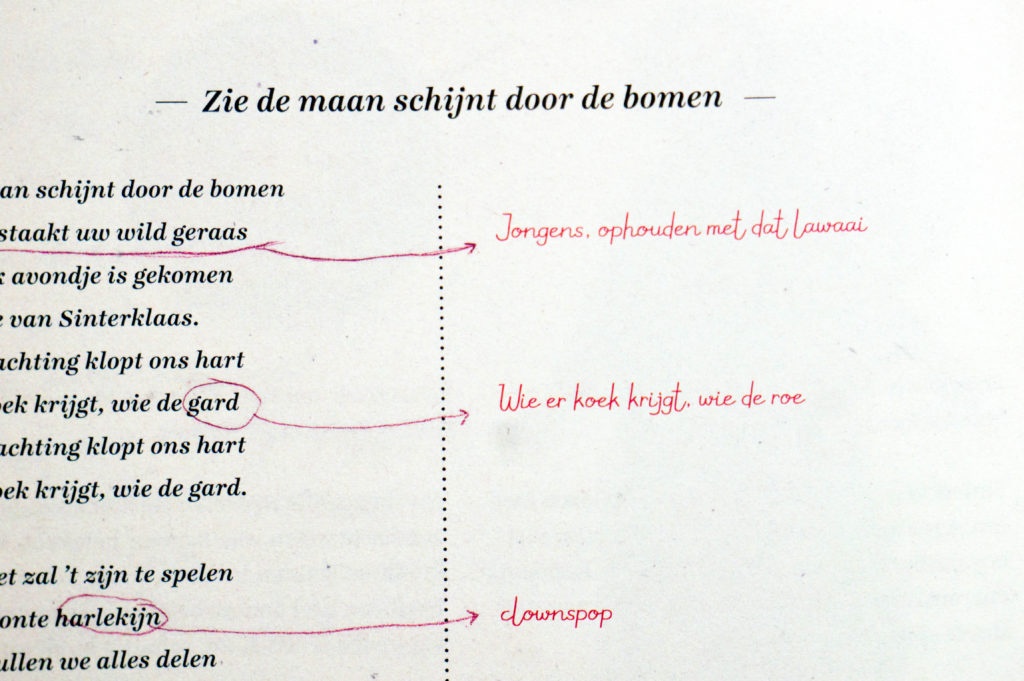 — Zie de maan schijnt door de bomen —
an schijnt door de bomen
staakt uw wild geraas
Jongens, ophouden met dat lawaai
avondje is gekomen
van Sinterklaas.
achting klopt ons hart
oek krijgt, wie de gard
Wie er koek krijgt, wie de roe
achting klopt ons hart
oek krijgt, wie de gard.
et zal 't zijn te spelen
onte harlekijn
clownspop
ullen we alles delen